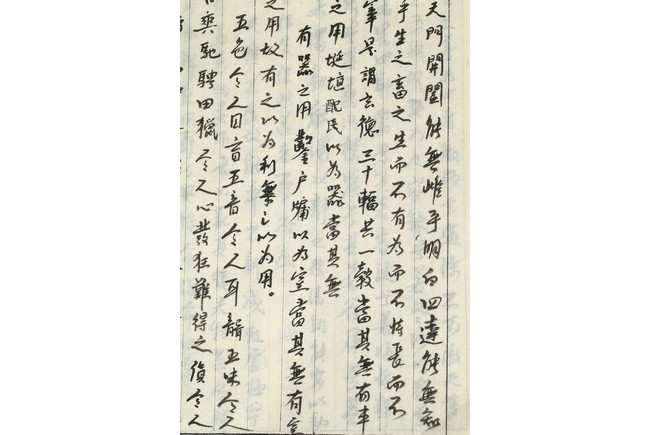 天門開闔能無雌乎明白四達能無知
乎生之畜之生而不有為而不恃長而不
宰是謂玄德三十輻共一轂當其無有車
之用埏埴配民以為器當其無
有器之用鑿户牖以為室當其無有室
之用故有之以為利無之以為用。
五色令人目盲五音令人耳聾五味令人
口爽馳騁田獵令人心發狂難得之貨令人